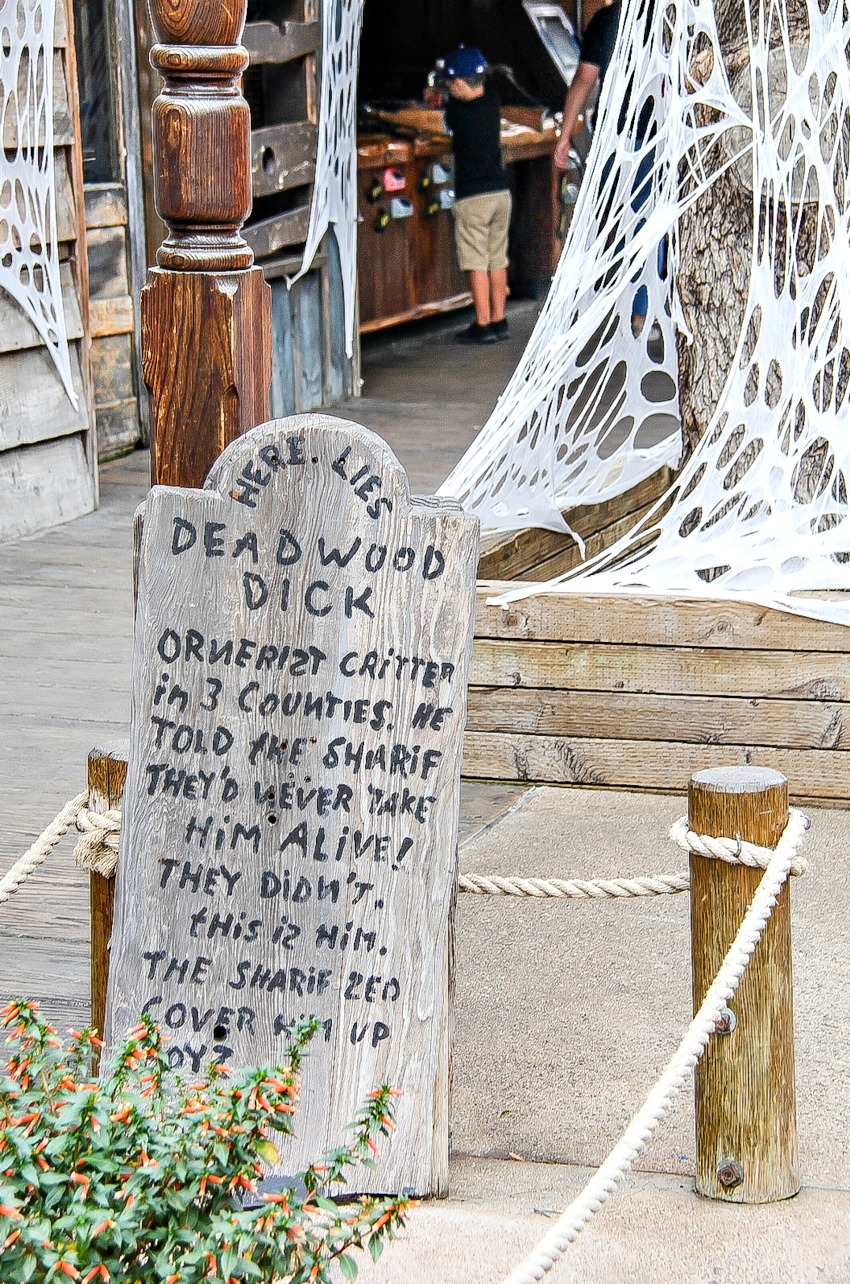 HERE. LIES
DEADWOOD
DICK
ORNERIZT CRITTER
in 3 COUNTIES. HE
TOLD tHE SHARIF
THEY'D NEVER TAKE
HiM ALiVE!
THEY DiDN'T.
tHis iz HiM.
THE SHARiF ZED
COVER HiM UP